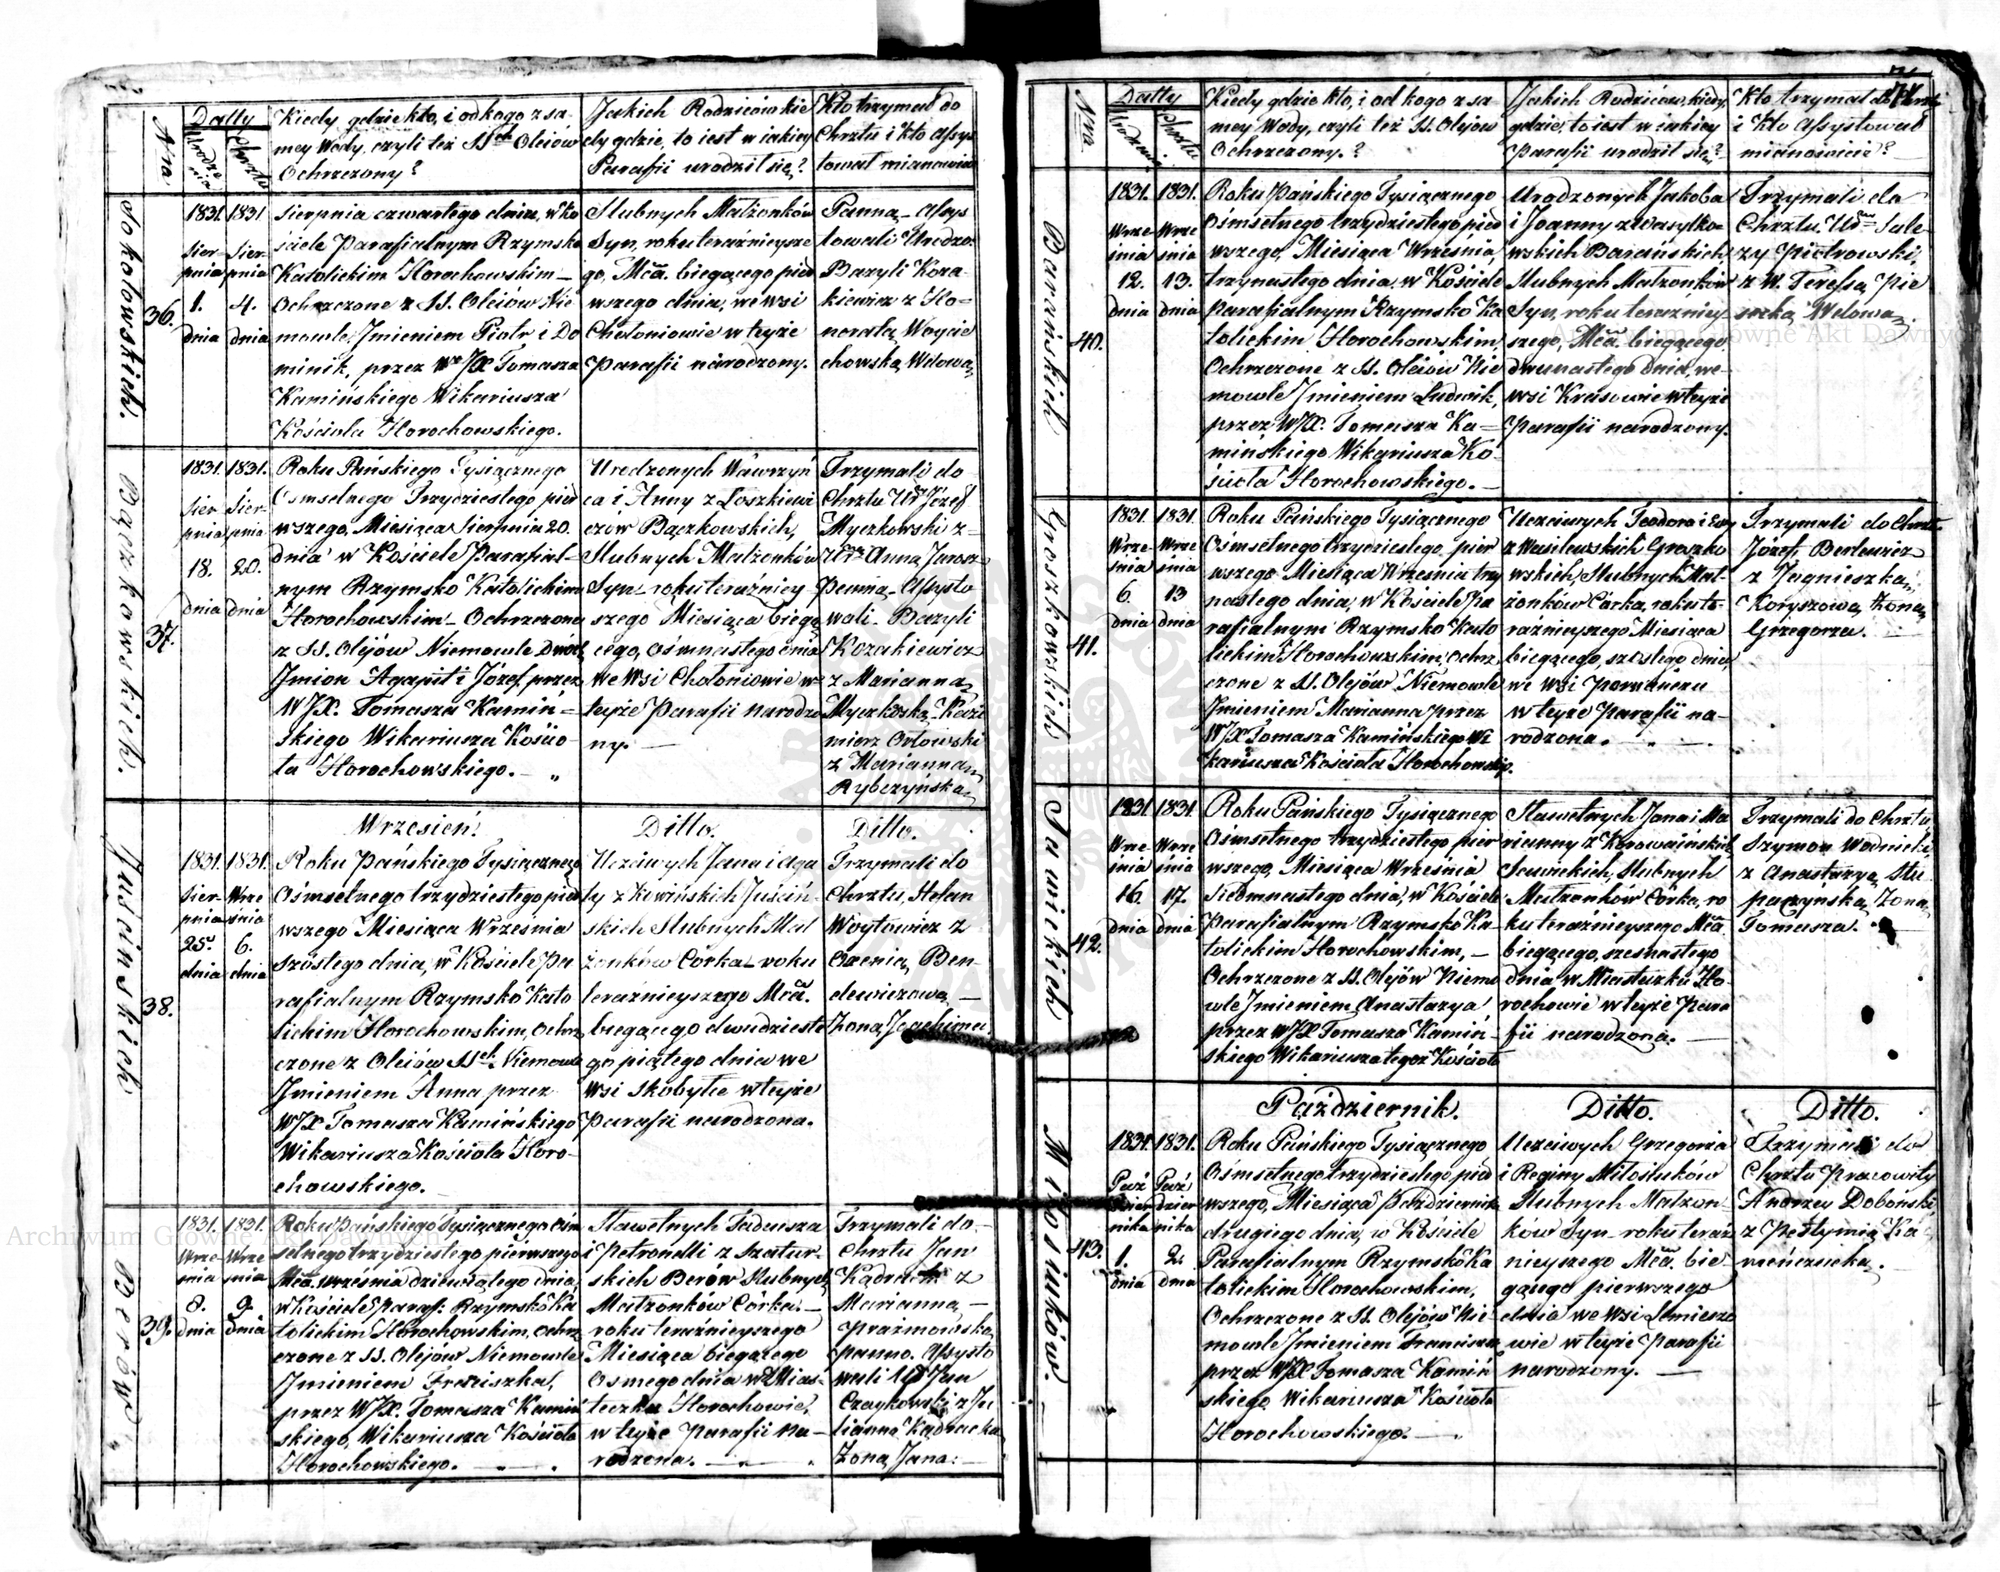 Nra
Datty
Urodze
nia
Chrztu
Kiedy gdzie kto, i od kogo z sa
mey Wody, czyli też SSch Oleiów
Ochrzczony?
Jakich Rodziców kie
dy gdzie, to iest w iakiey
Parafii urodził się?
Kto trzymał do
Chrztu i kto assys
tował mianowicie
Sokołowskich.
36.
1831
Sier-
pnia
1.
dnia
1831
Sier-
pnia
4.
dnia
Sierpnia czwartego dnia, w ko
ściele Parafialnym Rzymsko
Katolickim Horochowskim—
Ochrzczone z SS. Oleiów Nie
mowle Jmieniem Piotr, i Do
minik, przez WJX Tomasza
Kamińskiego Wikariusza
Kościoła Horochowskiego.
Slubnych Małżonków
Syn, roku teraźnieysze
go, Mca. biegącego pier
wszego dnia, we wsi
Chołoniowie w teyże
Parafii narodzony.
Panną— Assys
towali Urodzo.
Bazyli Koza
kiewicz z Ho—
noratą Woycie
chowską Wdową.
Bączkowskich.
37.
1831.
Sier
pnia
18.
dnia
1831.
Sier-
pnia
20.
dnia
Roku Pańskiego Tysiącznego
Osmsetnego Trzydziestego pier
wszego, Miesiąca Sierpnia 20.
dnia w Kościele Parafial-
nym Rzymsko Katolickim
Horochowskim— Ochrzczone
z SS. Olejów Niemowle Dwóch
Jmion Agapit i Józef, przez
WJX. Tomasza Kamiń=
skiego Wikariusza Kościo-
ła Horochowskiego.—
Urodzonych Wawrzyń
ca i Anny z Łoszkiewi
czów Bączkowskich,
Slubnych Małżonków
Syn— roku teraźniey
szego Miesiąca biegą
cego, ośmnastego dnia
we Wsi Chołoniowie w
teyże Parafii narodzo
ny.—
Trzymali do
Chrztu Ur Józef
Myczkowski z—
Anną Jarosz
Panną— Assysto
wali— Bazyli
Kozakiewicz
z Marianną
Myczkoską— Kazi
mierz Orłowski
z Marianną
Rybczyńską
Wrzesień.
Ditto.
Ditto.
Juścińskich
38.
1831.
Sier-
pnia
25.
dnia
1831.
Wrze
śnia
6.
dnia
Roku Pańskiego Tysiącznego
Osmsetnego trzydziestego pier
wszego Miesiąca Września
szóstego dnia, w Kościele Pa
rafialnym Rzymsko Kato
lickim Horochowskim, Ochrz
czone z Oleiów SSch. Niemowle
Jmieniem Anna przez
WJX Tomasza Kamińskiego
Wikariusza Kościoła Horo-
chowskiego.—
Uczciwych Jana i Aga
ty z Kiwińskich Juściń-
skich Slubnych Mał
żonków Córka— roku
teraźnieyszego Mca.
biegącego dwudzieste
go piątego dnia we
Wsi Skobyłce w teyże
Parafii narodzona.
Trzymali do
Chrztu, Stefan
Woytowicz z
Ben-
dewiczową—
Żoną Joachima.
Berów
39.
1831.
Wrze
śnia
8.
dnia
1831.
Wrze
śnia
9.
dnia
Roku Pańskiego Tysiącznego Ośm
setnego trzydziestego pierwszego
Mca. września dziewiątego dnia,
w Kościele Paraf: Rzymsko Ka
tolickim Horochowskim, Ochrz
czone z SS. Olejów Niemowle
Jmieniem Franciszka,
przez WJX. Tomasza Kamiń
skiego, Wikariusza Kościoła
Horochowskiego.—
Sławetnych Tadeusza
i Petronelli z Szatur-
skich Berów Slubnych
Małżonków Córka.—
roku teraźnieyszego
Miesiąca biegącego
Osmego dnia w Mias-
teczku Horochowie,
w teyże Parafii na-
rodzona.—
Trzymali do—
Chrztu Jan
z
Marianną—
Prażmowską
panno. Assysto
wali Ur Jan
Czaykowski z Ju
lianną
Żoną Jana:—
Nra
Datty
Urodzenia
Chrztu
Kiedy gdzie kto, i od kogo z sa
mey Wody, czyli też SS. Olejów
Ochrzczony.?
Jakich Rodziców, kiedy
gdzie, to iest w iakiey
Parafii urodził się?
Kto trzymał do Chrztu
i kto Assystował
mianowicie?
Barańskich
40.
1831.
Wrze
śnia
12.
dnia
1831.
Wrze
śnia
13.
dnia
Roku Pańskiego Tysiącznego
Ośmsetnego trzydziestego pier
wszego, Miesiąca Września,
trzynastego dnia, w Kościele
Parafialnym Rzymsko Ka
tolickim Horochowskim,
Ochrzczone z SS. Oleiów Nie
mowle Jmieniem Ludwik,
przez WJX. Tomasza Ka=
mińskiego Wikariusza Ko-
ścioła Horochowskiego.—
Urodzonych Jakóba
i Joanny z Wasylko=
wskich Barańskich
Slubnych Małżonków
Syn, roku teraźniey
szego, Mca. biegącego
dwunastego dnia, we-
wsi Krasowie w teyże
Parafii narodzony.
Trzymali do
Chrztu Ur Jale
zy Piotrowski,
z W. Teressą Pie
Wdową.
Groszkowskich
41.
1831.
Wrze-
śnia
6.
dnia
1831.
Wrze
śnia
13
dnia
Roku Pańskiego Tysiącznego
Ośmsetnego trzydziestego, pier
wszego Miesiąca Września trzy
nastego dnia, w Kościele Pa
rafialnym Rzymsko Kato
lickim Horochowskim, Ochrz
czone z SS. Olejów Niemowle
Jmieniem Marianna przez
WJX Tomasza Kamińskiego Wi
kariusza Kościoła Horochowskiego.
Uczciwych Teodora i Ewy
z Wasilewskich Groszko
wskich, Slubnych Mał-
żonków Córka, roku te-
raźnieyszego Miesiąca
biegącego, szóstego dnia,
we Wsi Perwanczu
w teyże Parafii na-
rodzona.—
Trzymali do Chrztu
Józef Berlewicz
z Jagnieszką
Koryszową, żoną
Grzegorza.—
Sawickich
42.
1831.
Wrze
śnia
16.
dnia
1831.
Wrze
śnia
17.
dnia
Roku Pańskiego Tysiącznego
Ośmsetnego trzydziestego pier
wszego, Miesiąca Września
Siedmnastego dnia, w Kościele
Parafialnym Rzymsko Ka-
tolickim Horochowskim,—
Ochrzczone z SS. Olejów Niemo
wle Jmieniem Anastazya
przez WJX Tomasza Kamiń
skiego Wikariusza tegoż Kościoła
Sławetnych Jana i Ma
rianny z Korowaińskich
Sawickich, Slubnych
Małżonków Córka, ro
ku teraźnieyszego Mca.
biegącego, szesnastego
dnia, w Miasteczku Ho-
rochowie w teyże Para
fii narodzona.—
Trzymali do Chrztu,
Szymon Wodnicki,
z Anastazyą Stu
paczyńską, Żoną
Tomasza.
Październik.
Ditto.
Ditto.
Miłosiuków.
43.
1831.
Paź
dzier
nika
1.
dnia
1831.
Paź
dzier
nika
2.
dnia
Roku Pańskiego Tysiącznego
Ośmsetnego trzydziestego pier
wszego, Miesiąca Października
drugiego dnia, w Kościele
Parafialnym Rzymsko Ka
tolickim Horochowskim,
Ochrzczone z SS. Olejów Nie-
mowle Jmieniem Franciszek
przez WJX Tomasza Kamiń
skiego Wikariusza Kościoła
Horochowskiego.—
Uczciwych Grzegorza
i Reginy Miłosiuków
Slubnych Małżon-
ków Syn— roku teraź
nieyszego Mca. bie
gącego pierwszego
dnia we Wsi Łemieszo
wie w teyże Parafii
narodzony.—
Trzymali do
Chrztu Pracowity
Andrzey Doboński,
z Ka-
mieńczucką.
Archiwum Główne Akt Dawnych
Archiwum Główne Akt Dawnych